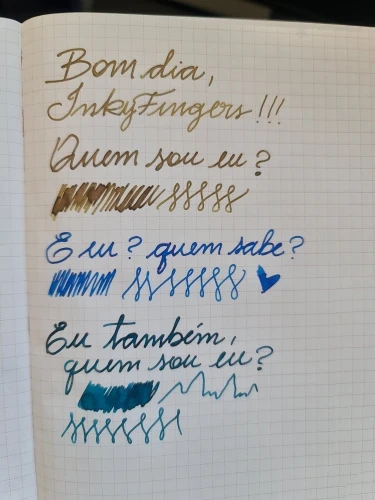 Bom dia,
InkyFingers!!!
Quem sou eu?
E eu? quem sabe?
Eu também,
quem sou eu?